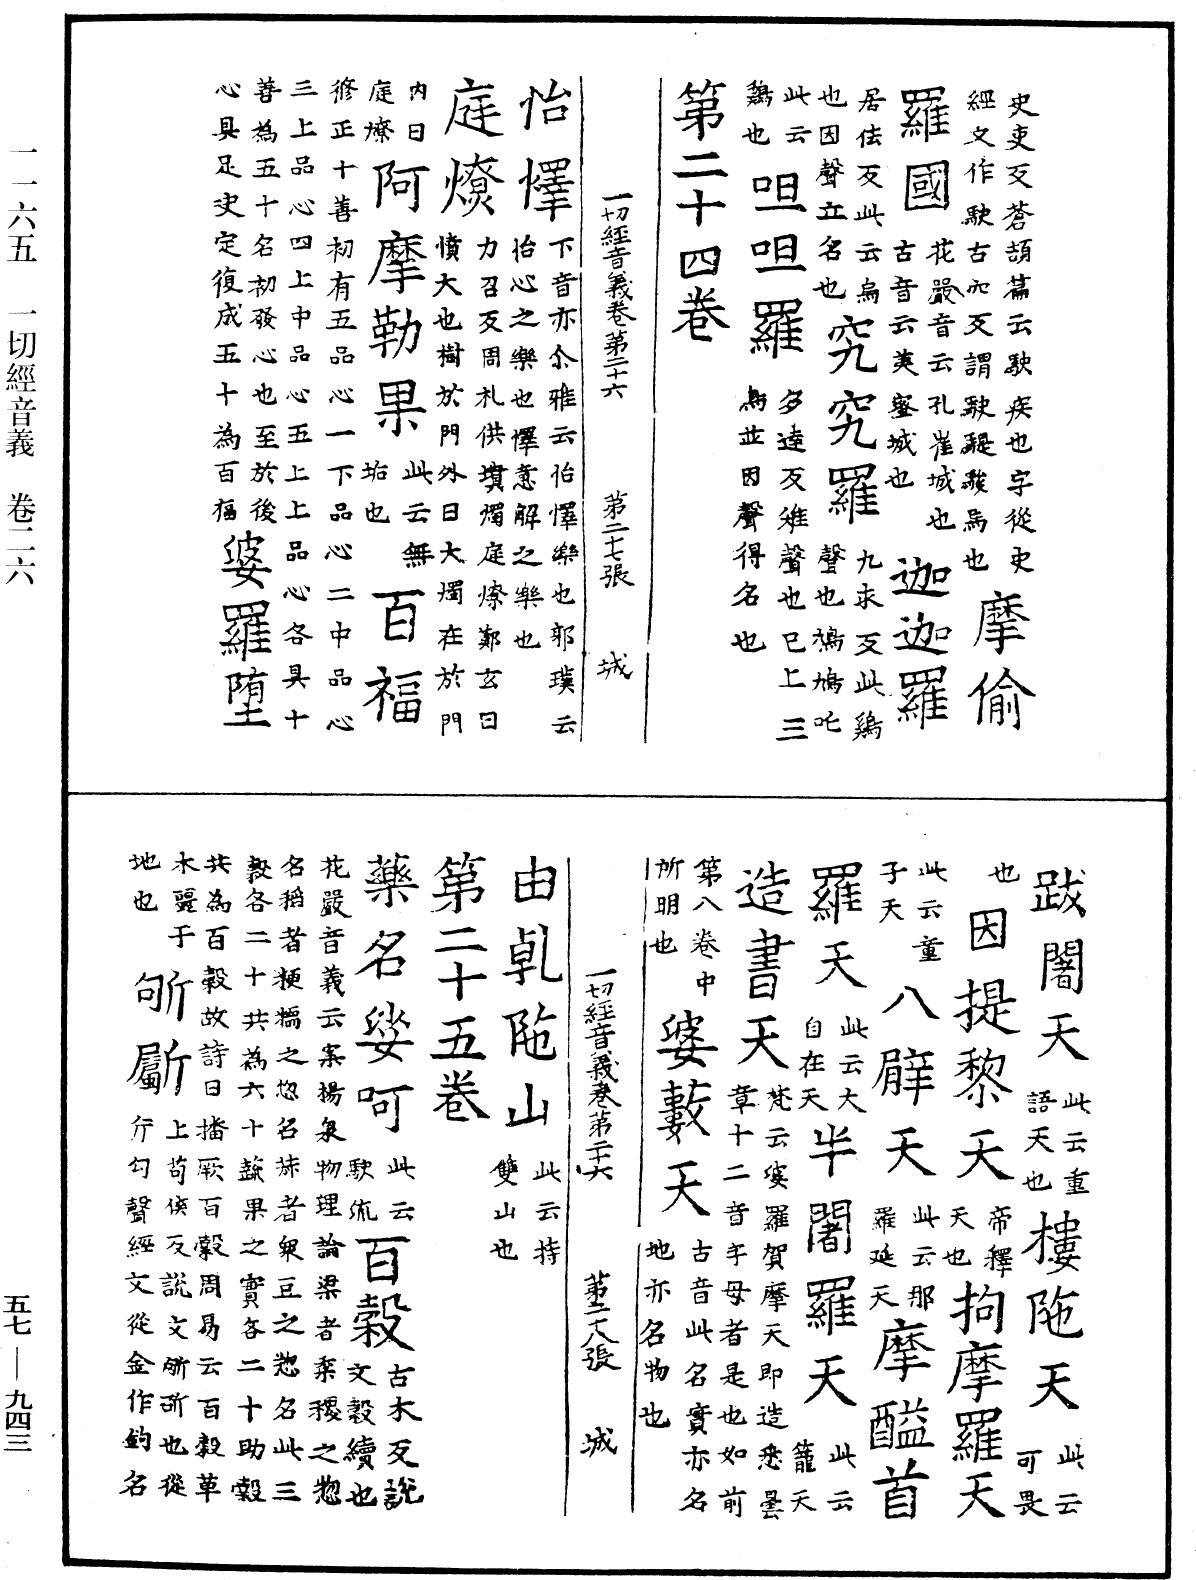 一一六五　一切經音義　卷二六
五七—九四三
史吏反蒼頡篇云駛疾也字從史
經文作駃古穴反謂駃騠駿馬也摩偷
羅國花嚴音云孔雀城也古音云美蜜城也迦迦羅
居佉反此云烏也因聲立名也究究羅九求反此鷄聲也鳩鳩吒
此云鷄也呾呾羅多達反雉聲也已上三鳥並因聲得名也
第二十四卷
一切經音義卷第二十六　第二十七張　城
怡懌下音亦尒雅云怡懌樂也郭璞云怡心之樂也懌意解之樂也
庭燎力召反周札供墳燭庭燎鄭玄曰墳大也樹於門外曰大燭在於門
內曰庭燎阿摩勒果此云無垢也百福
修正十善初有五品心一下品心二中品心
三上品心四上中品心五上上品心各具十
善為五十名初發心也至於後
心具足決定復成五十為百福婆羅墮
跋闍天此云重語天也樓陁天此云可畏
也因提黎天帝釋天也拘摩羅天
此云童子天八臂天此云那羅延天摩醯首
羅天此云大自在天半闍羅天此云籠天
造書天梵云婆羅賀摩天即造悉曇章十二音字母者是也如前
第八卷中所明也婆藪天古音此名實亦名地亦名物也
一切經音義卷第二十六　第二十八張　城
由乹陁山此云持雙山也
第二十五卷
藥名娑呵此云駛流百穀古木反說文穀續也
花嚴音義云案楊泉物理論梁者黍稷之惣
名稻者粳糯之惣名菽者衆豆之惣名此三
穀各二十共為六十蔬果之實各二十助穀
共為百穀故詩曰播厥百穀周易云百穀草
木麗于地也斪斸上苟侯反說文斪斫也從
斤勾聲經文從金作鉤名